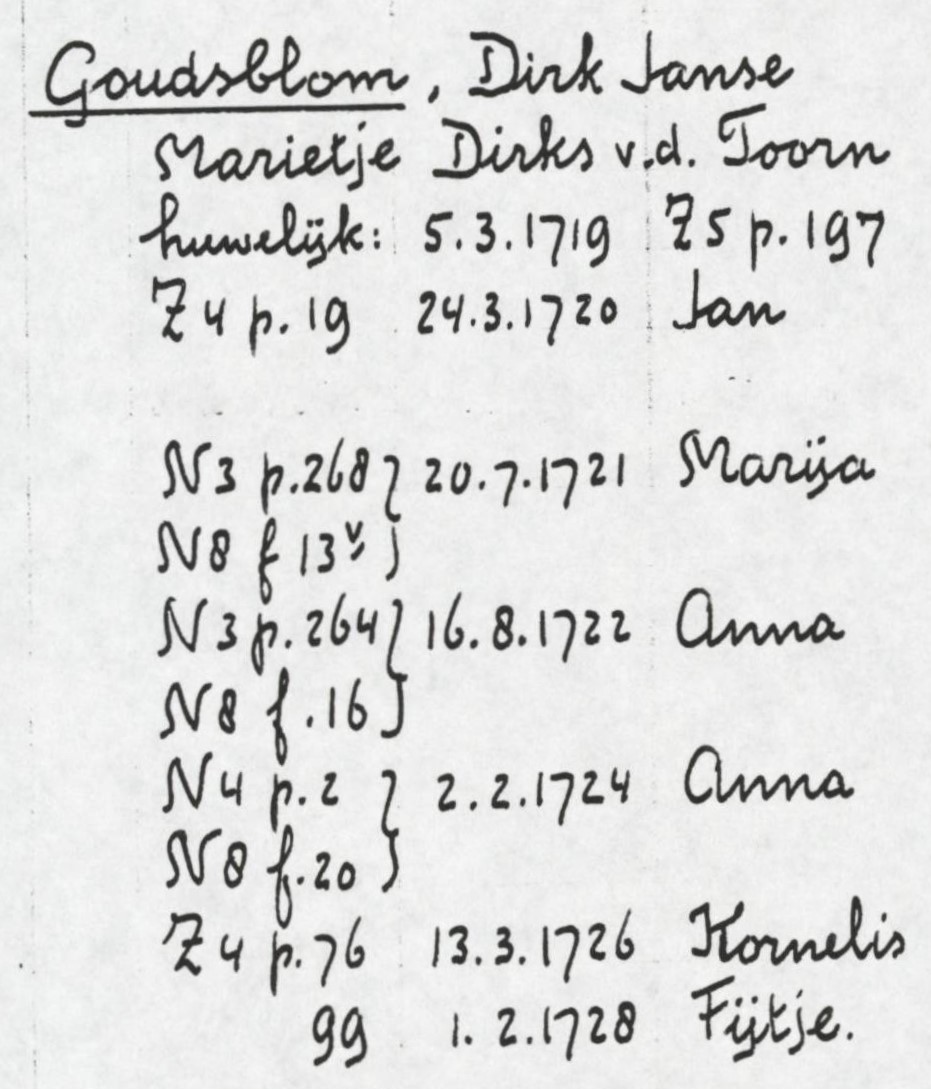 Goudsblom, Dirk Janse
Marietje Dirks v.d. Toorn
huwelijk: 5.3.1719 Z5 p.197
Z4 p.19 24.3.1720 Jan
N3 p.268 } 20.7.1721 Marija
N8 f 13v }
N3 p.264 } 16.8.1722 Anna
N8 f.16 }
N4 p.2 } 2.2.1724 Anna
N8 f.20 }
Z4 p.76 13.3.1726 Kornelis
99 1.2.1728 Fijtje.